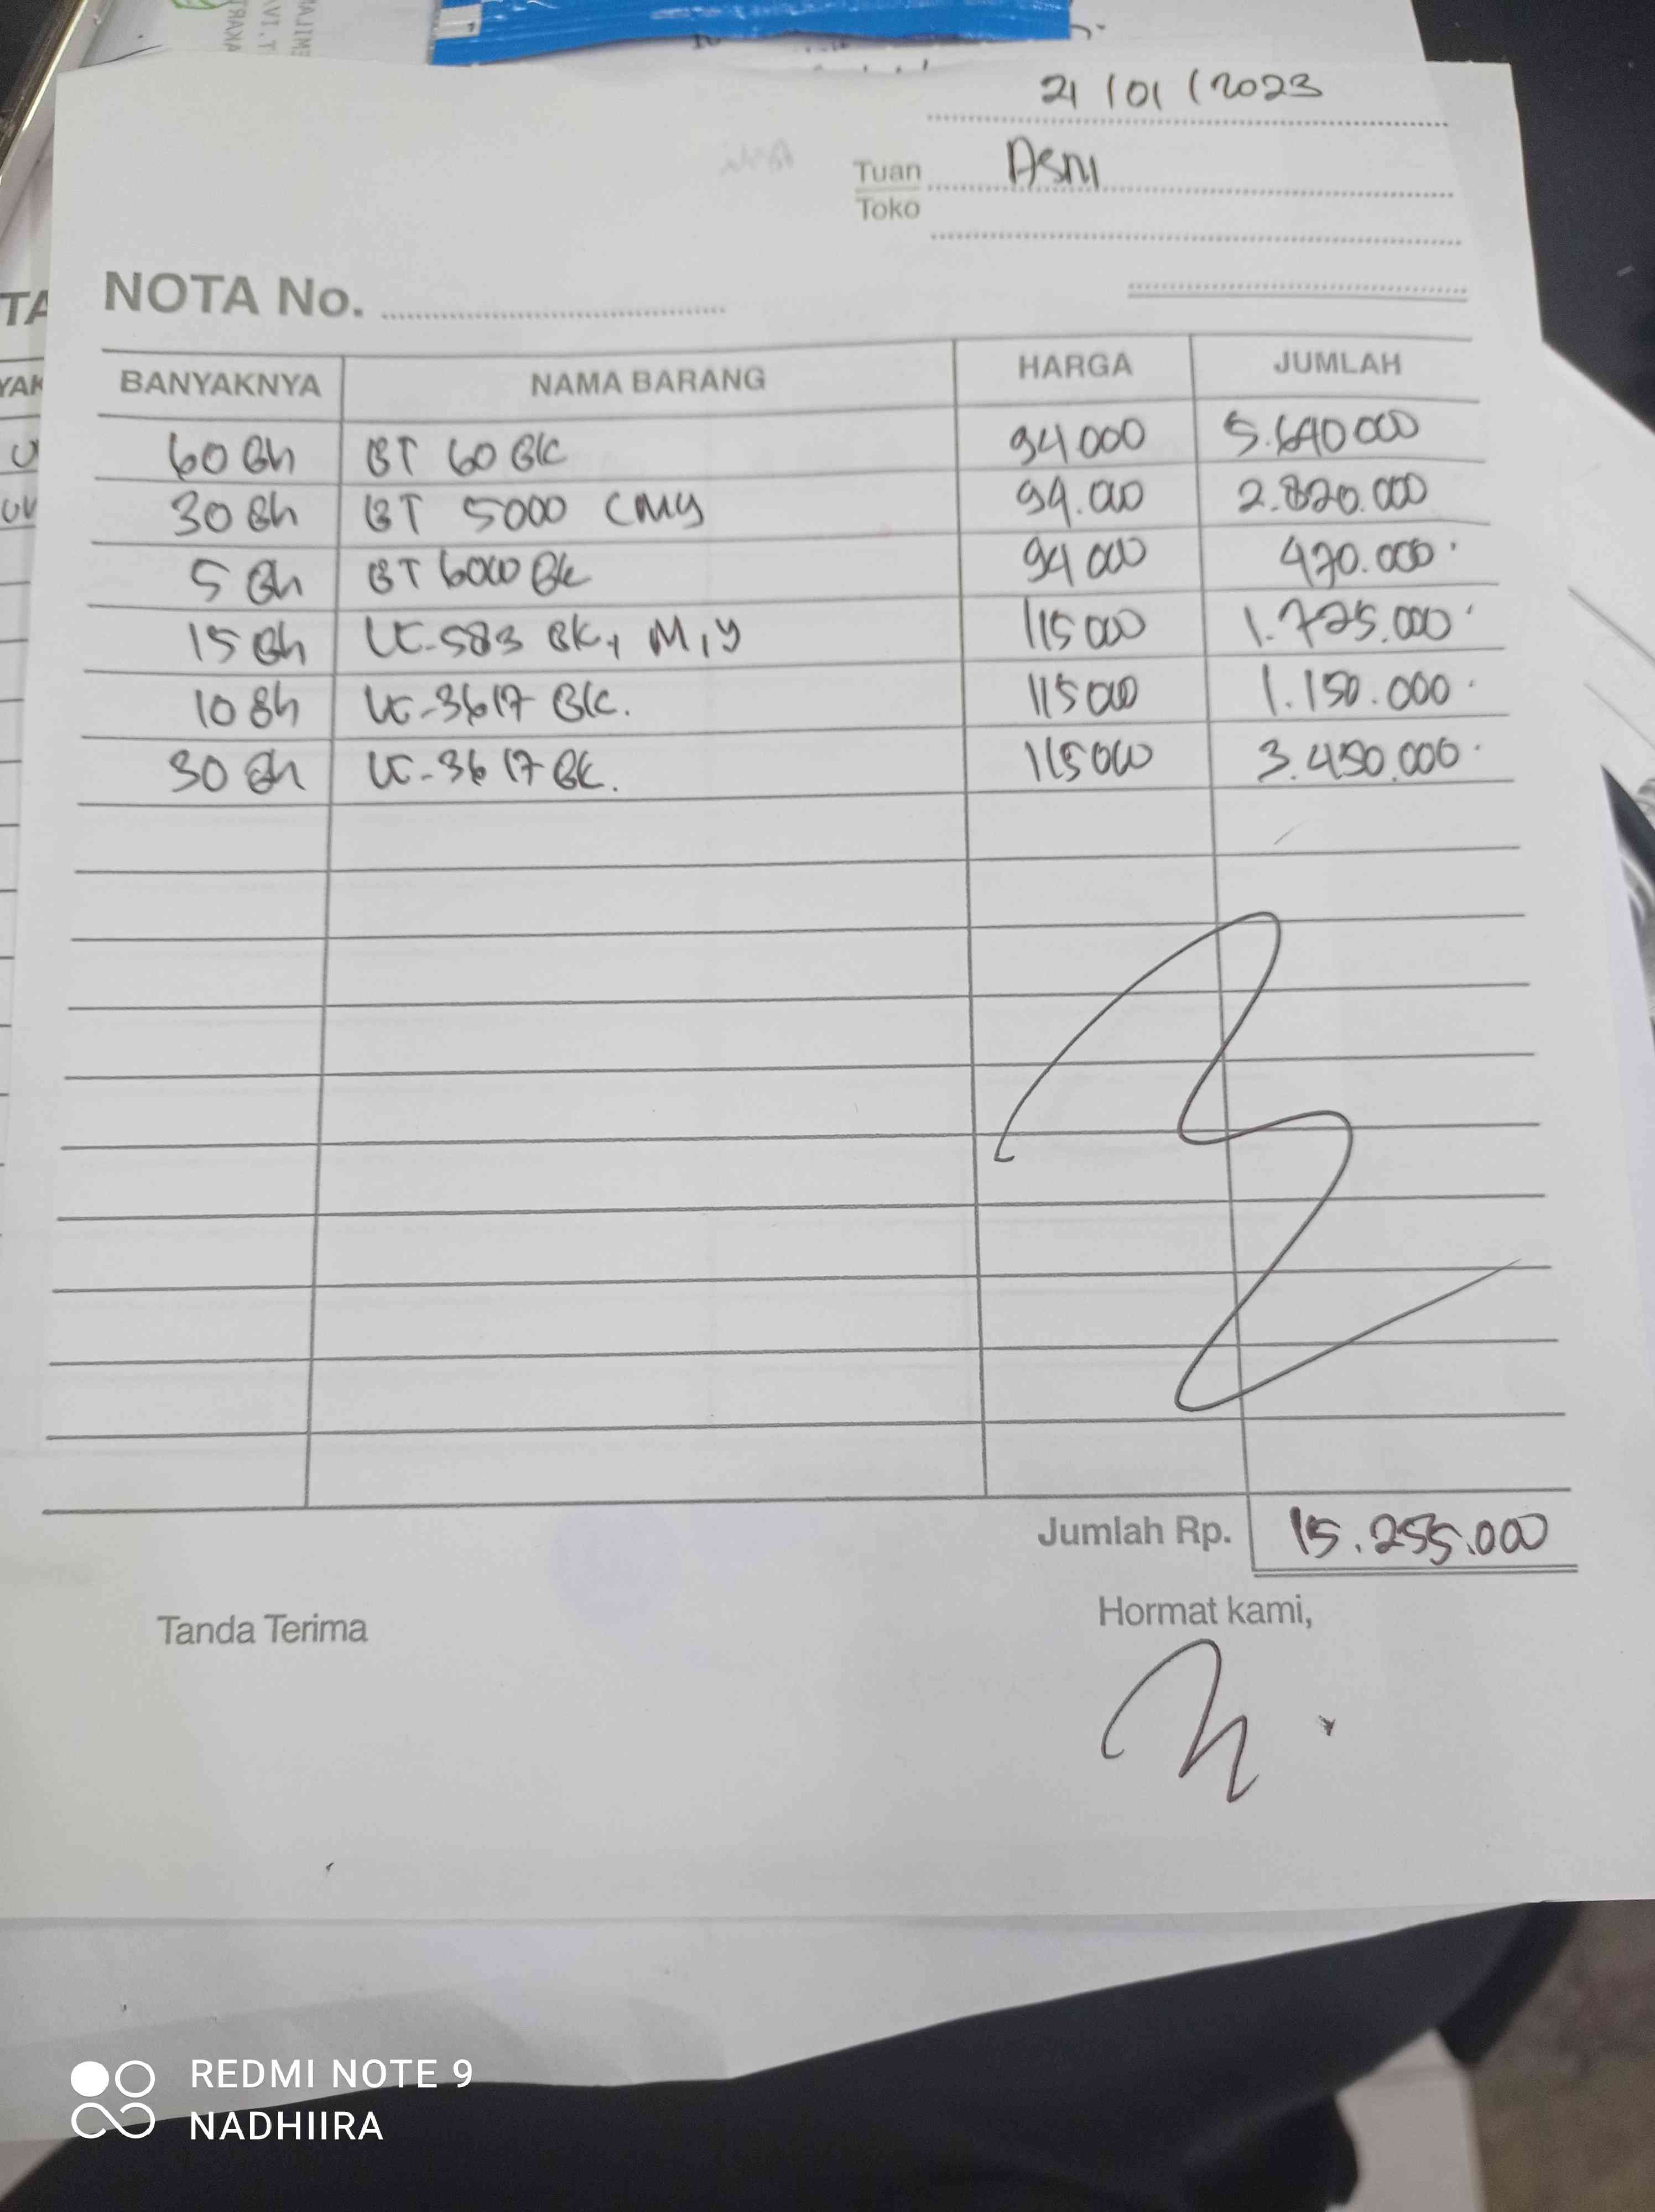 21/01/2023
Tuan Asni
Toko
NOTA No.
BANYAKNYA NAMA BARANG HARGA JUMLAH
60 Bh BT 60 BK 94 000 5.640 000
30 Bh BT 5000 CMY 94.000 2.820.000
5 Bh BT 6000 BK 94 000 470.000
15 Bh UC-583 BK, M, Y 115 000 1.725.000
10 Bh UC-3617 BK. 115 000 1.150.000
30 Bh UC-3617 BK. 115 000 3.450.000
Jumlah Rp. 15.255.000
Tanda Terima Hormat kami,
REDMI NOTE 9
NADHIIRA